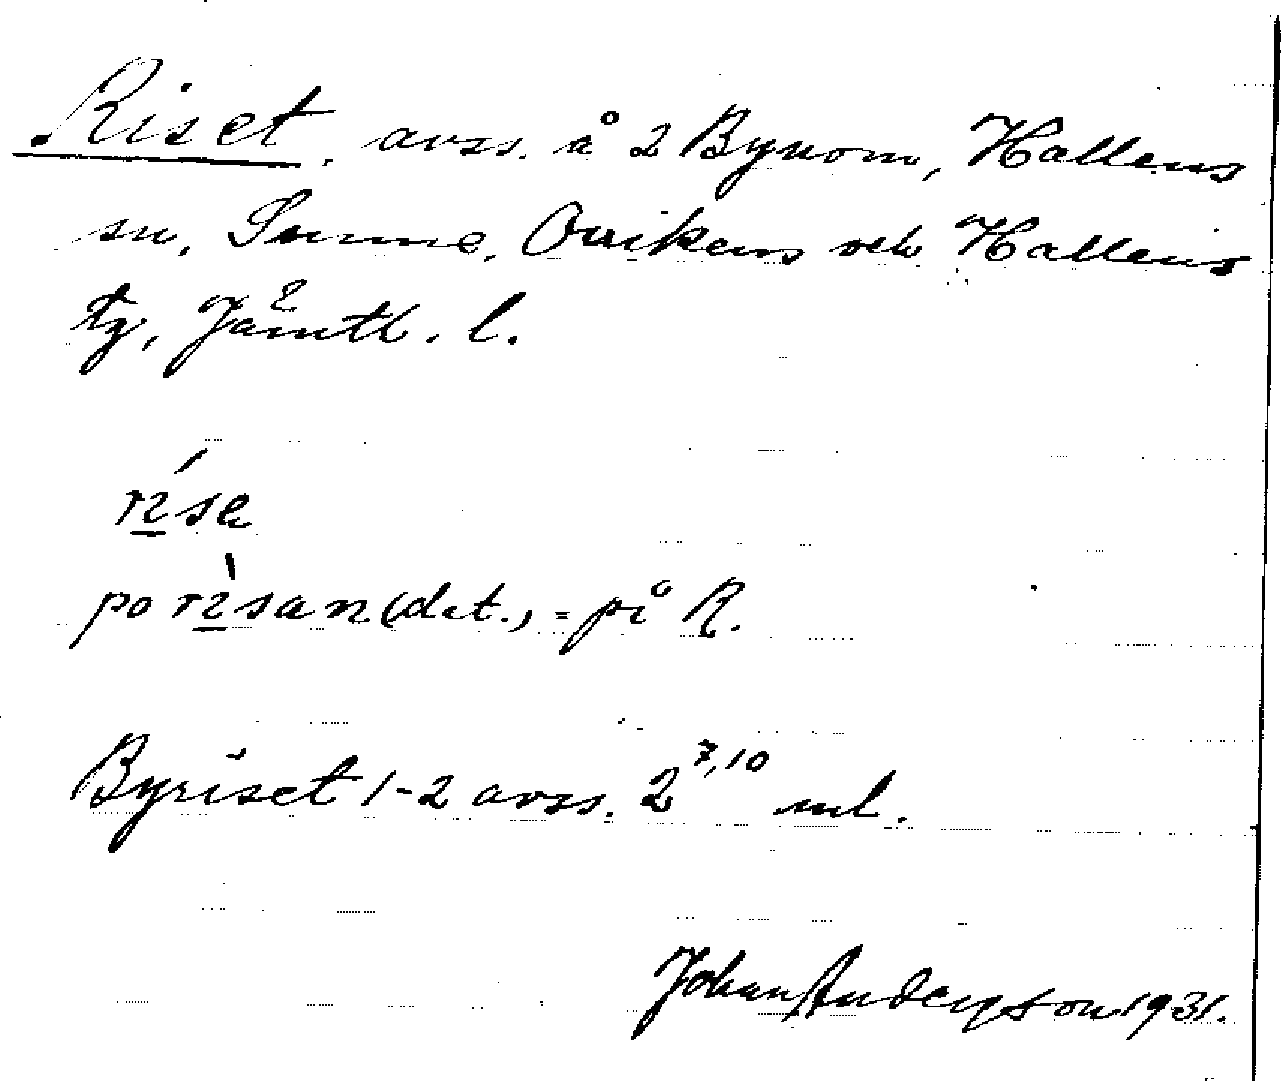 Riset, avss. å 2 Bynom, Hallens
sn, Sunne, Ovikens och Hallens
tg, Jämtl. l.
rí̱sɐ
po rì̱san (dat.) = på R.
Byriset 1-2 avss. 2 7,10 ml.
Johan Anderson 1931.